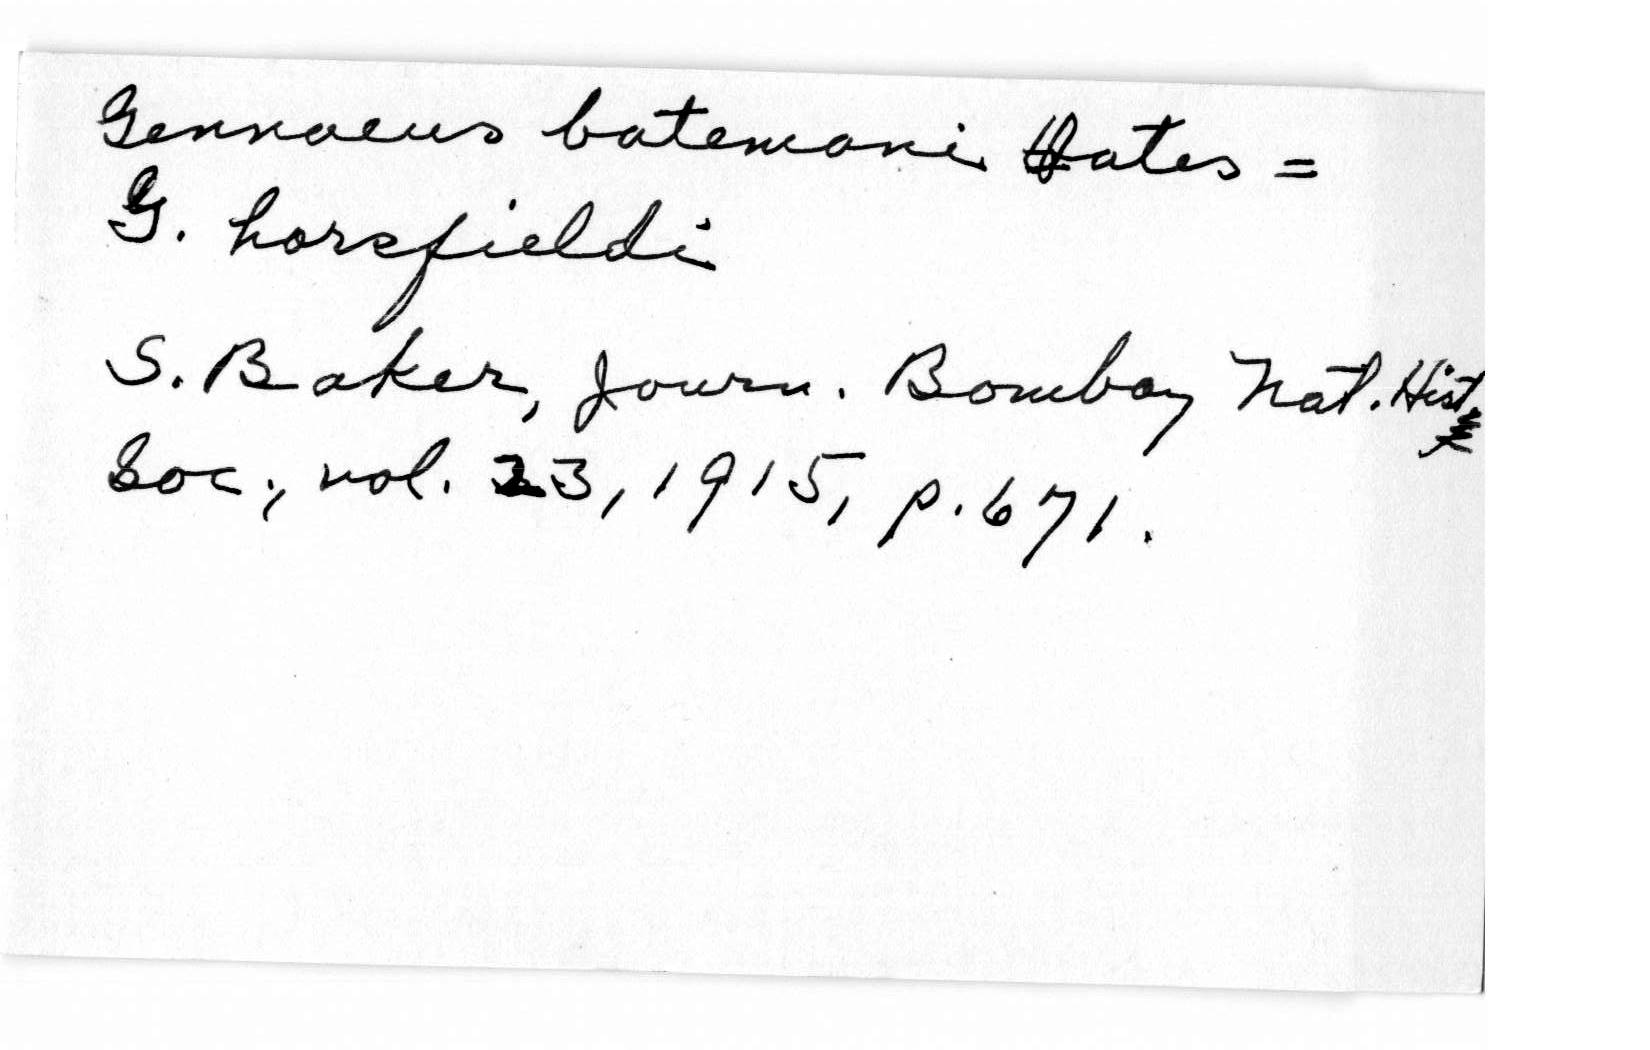 Gennaeus batemani Oates =
G. horsfieldi
S. Baker, Journ. Bombay Nat. Hist
Soc., vol. 23, 1915, p. 671.